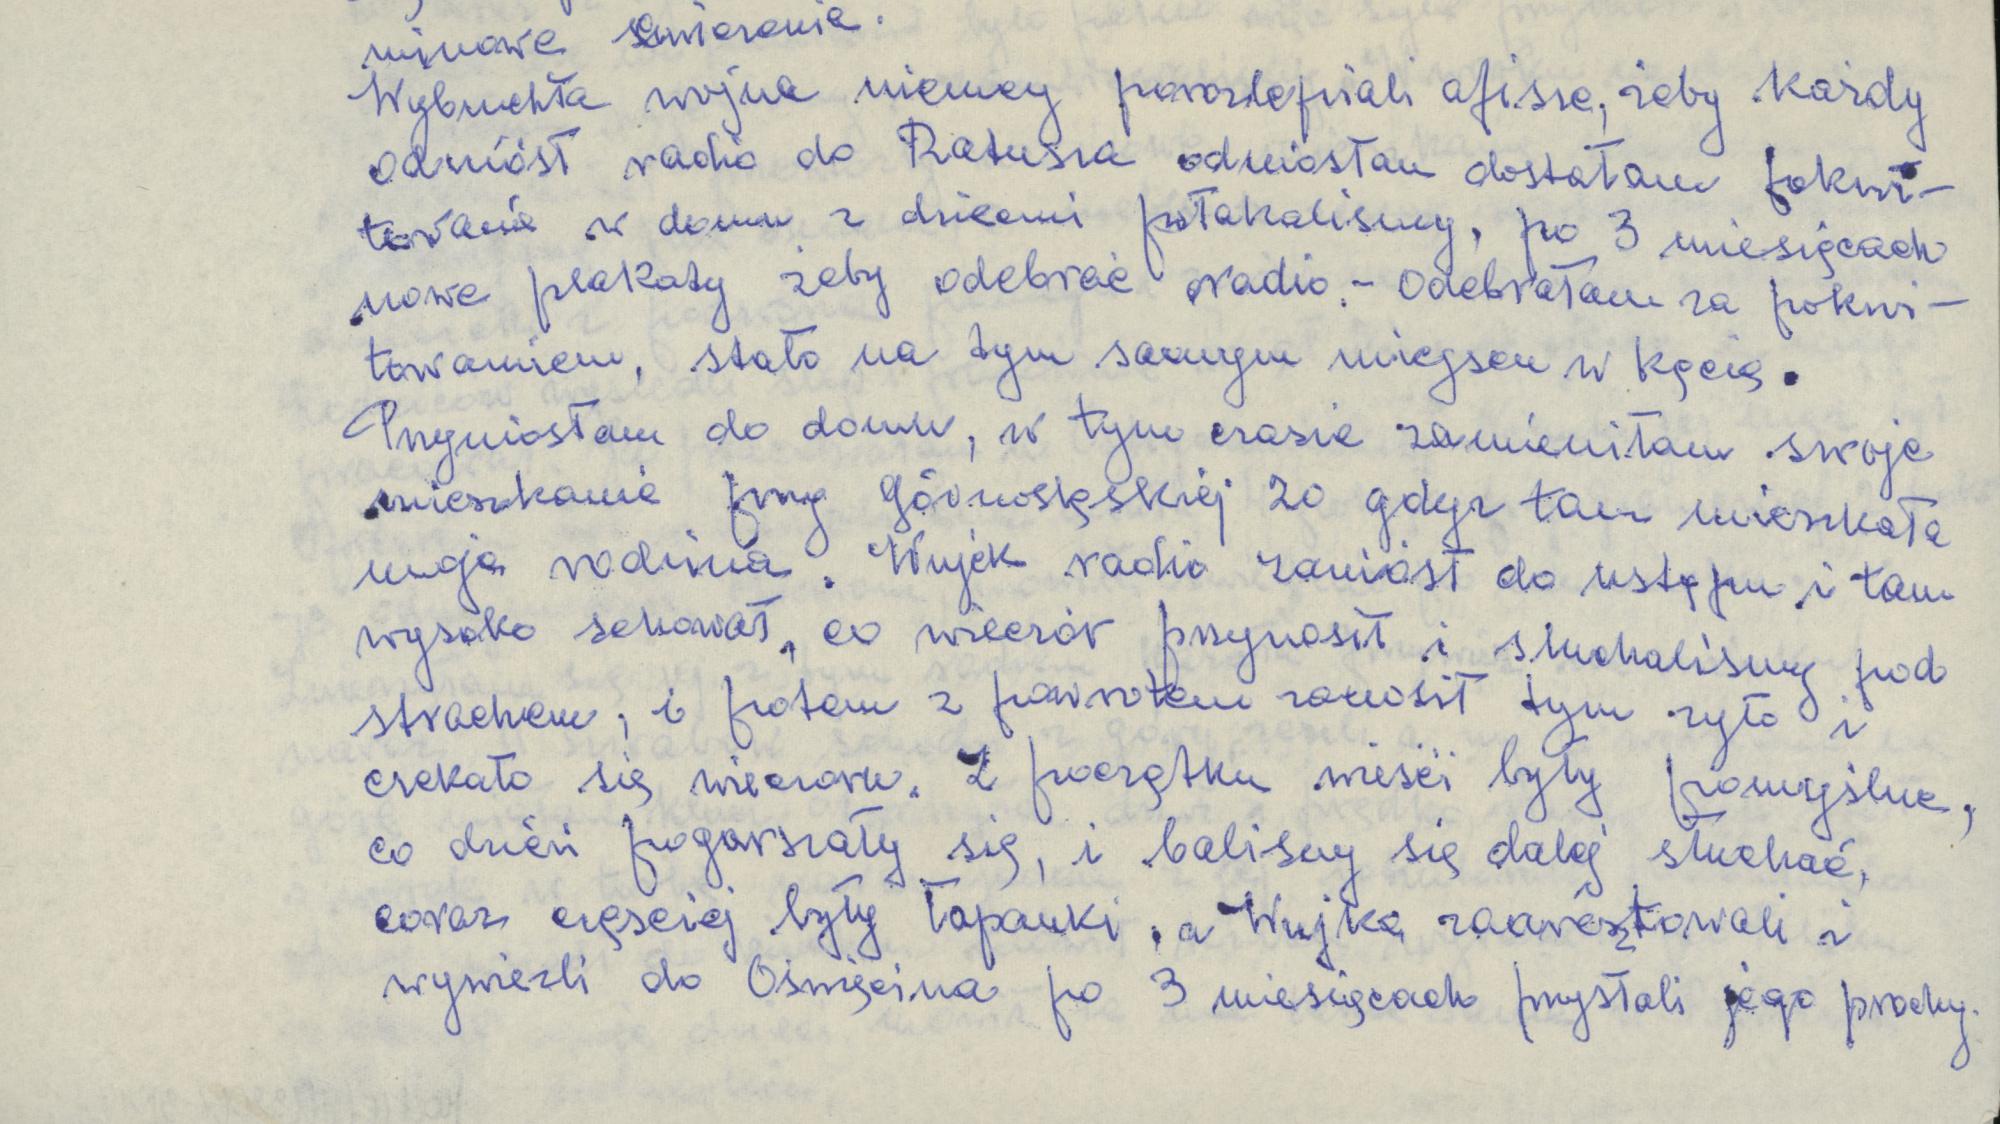 minowe zmierzenie.
Wybuchła wojna niemcy porozlepiali afisze, żeby każdy
odniósł radio do Ratusza odniosłam dostałam pokwi-
towanie w domu z dziećmi płakaliśmy, po 3 miesięcach
nowe plakaty żeby odebrać radio.- Odebrałam za pokwi-
towaniem, stało na tym samym miejscu w kącie.
Przyniosłam do domu, w tym czasie zamieniłam swoje
mieszkanie przy Górnośląskiej 20 gdyż tam mieszkała
moja rodzina. Wujek radio zaniósł do ustępu i tam
wysoko schował, co wieczór przynosił i słuchaliśmy pod
strachem, i potem z powrotem zanosił tym żyło i
czekało się wieczoru. Z początku wieści były pomyślne,
co dzień pogarszały się, i baliśmy się dalej słuchać,
coraz częściej były łapanki, a Wujka zaaresztowali i
wywieźli do Oświęcima po 3 miesięcach przysłali jego prochy.